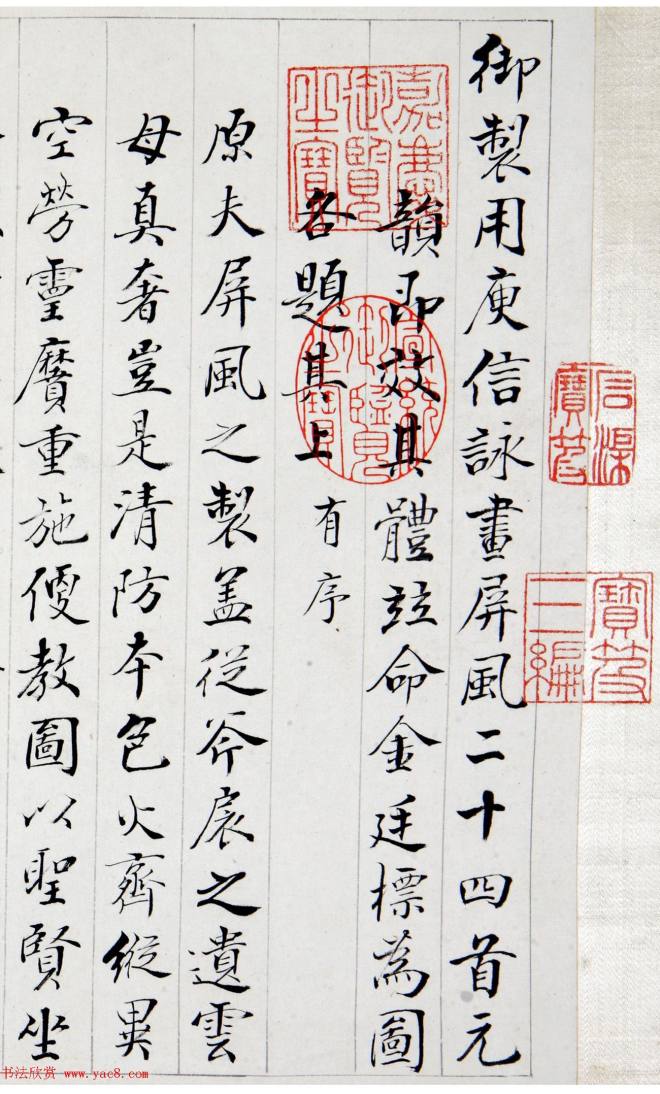 御製用庾信詠畫屏風二十四首元
韻即效其體並命金廷標為圖
各題其上有序
原夫屏風之製盖從斧扆之遺雲
母真奢豈是清防本色火齊縱異
空勞靈贋重施優教圖以聖賢坐
嘉慶御覽之寶
石渠寶笈
寶笈三編
书法欣赏 www.yac8.com